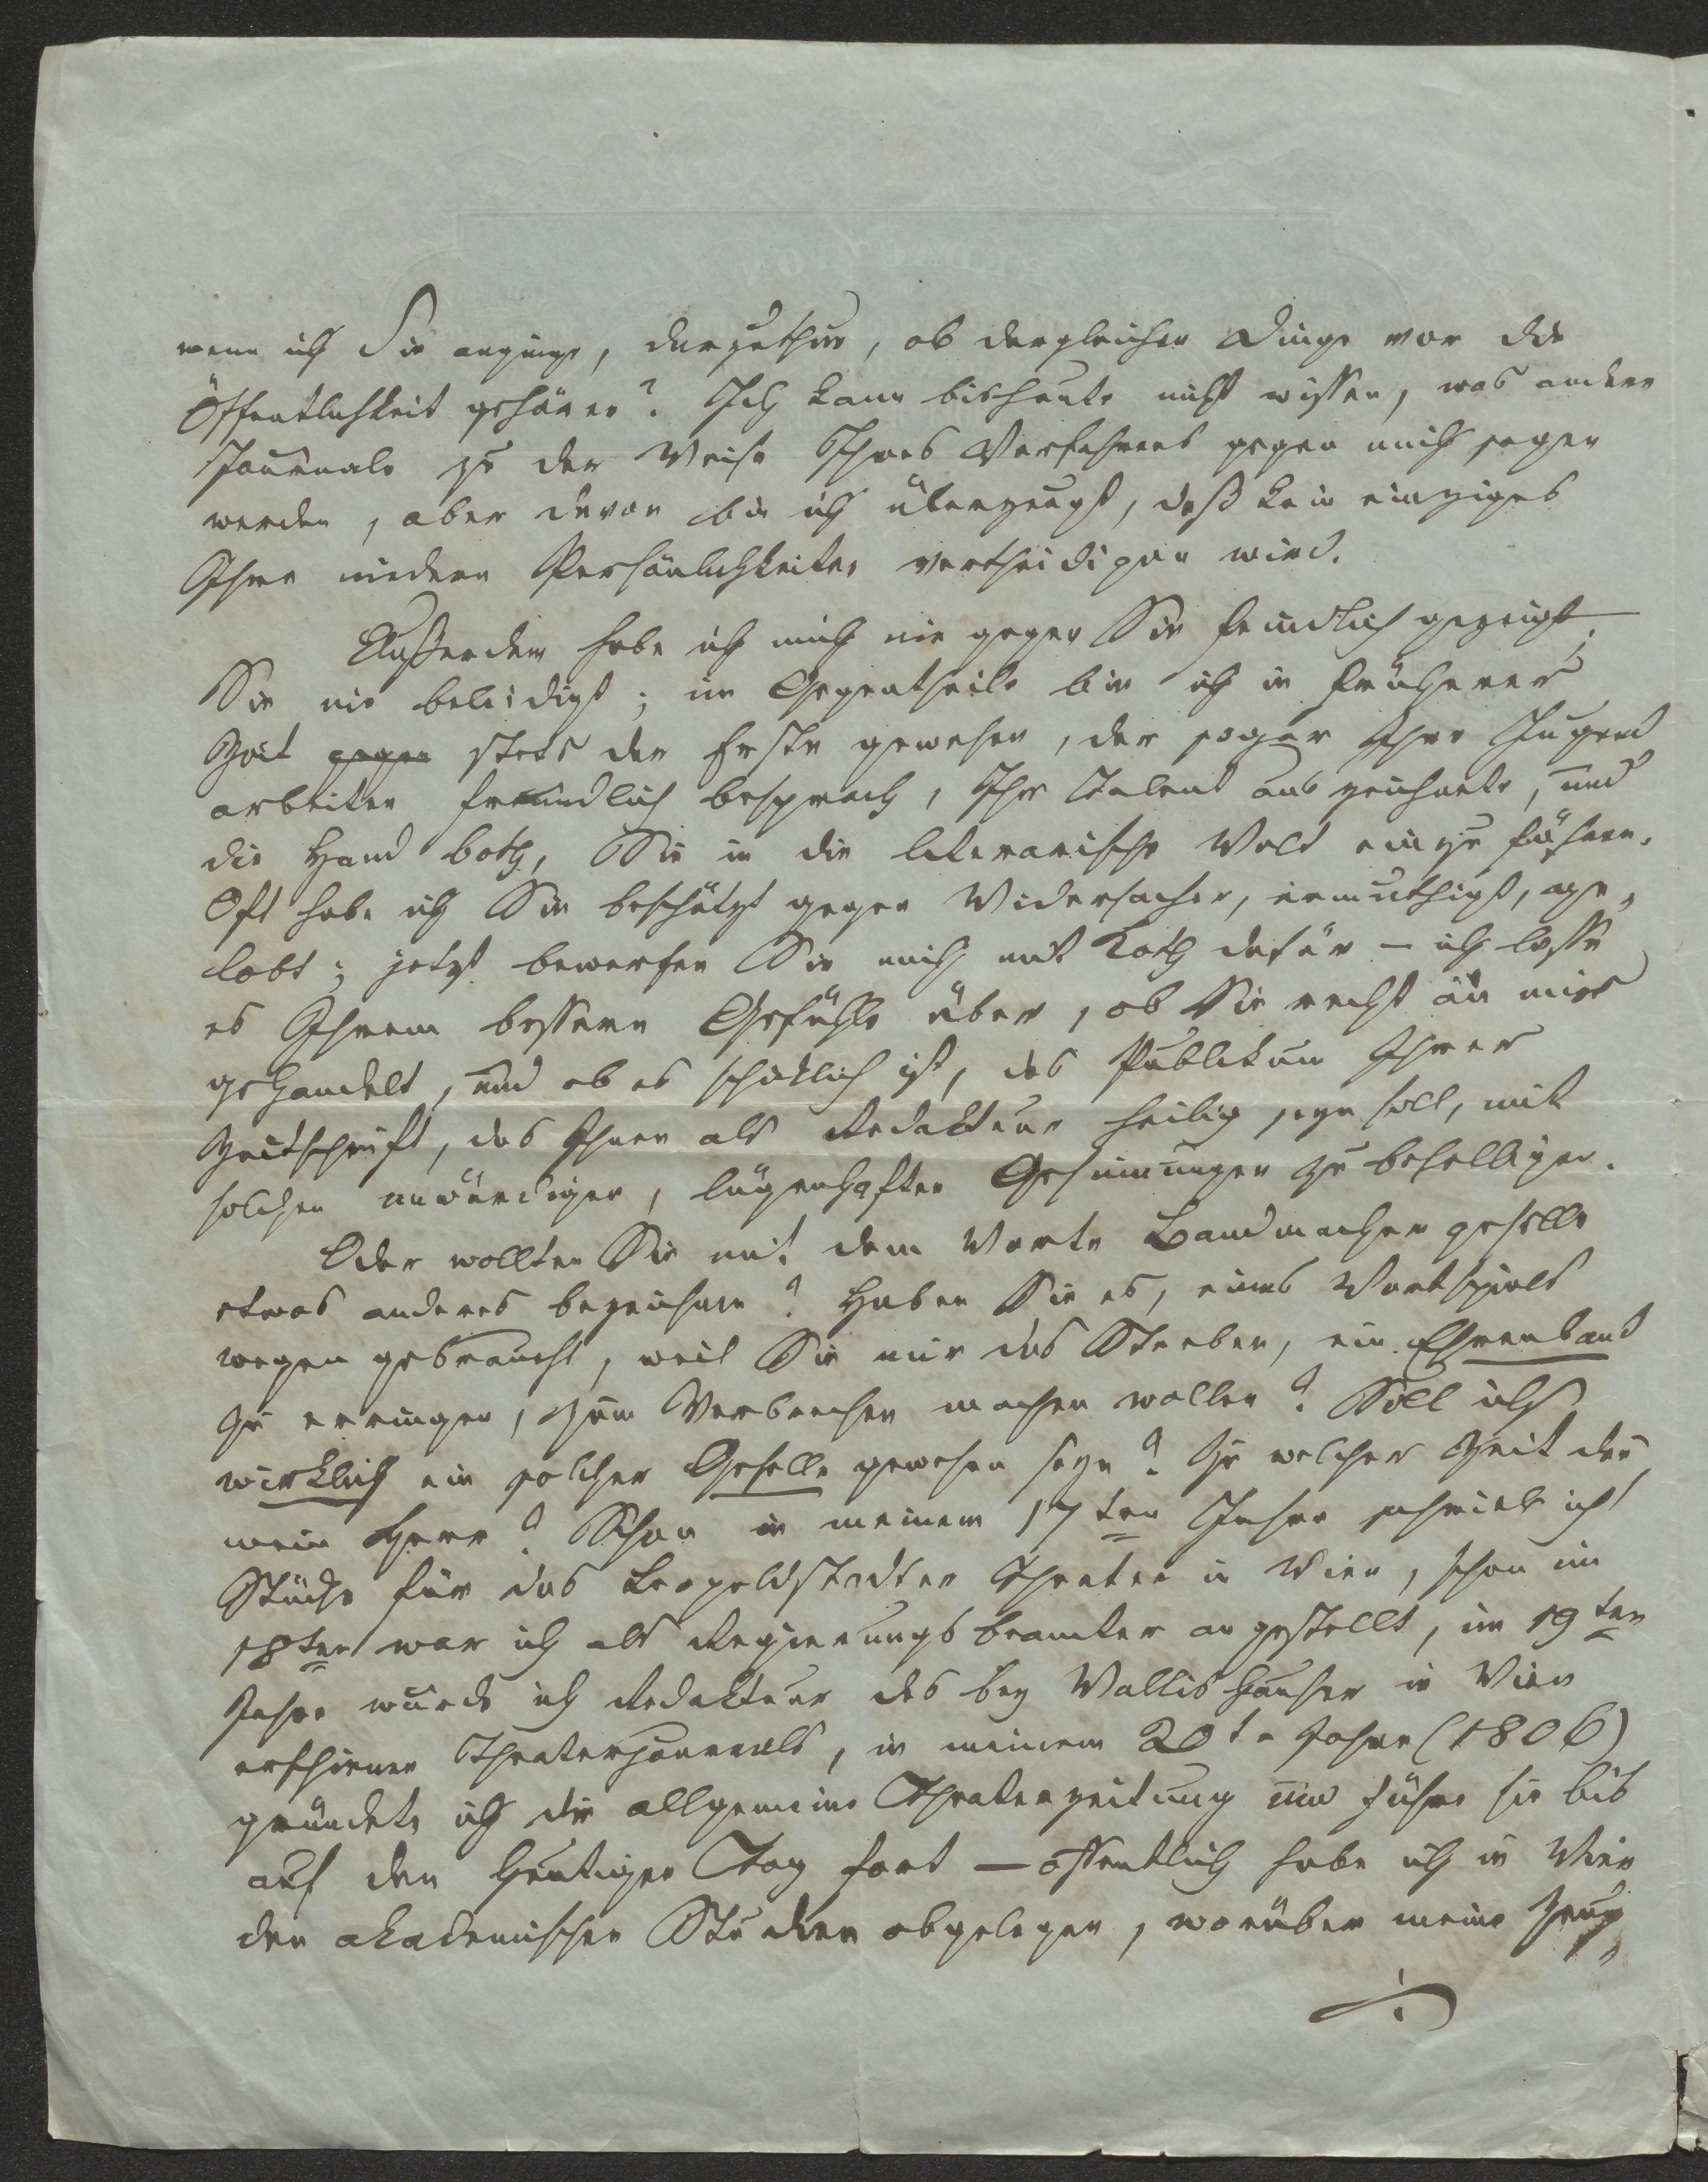 wenn ich Sie anginge, darzuthun, ob dergleichen Dinge vor die
Öffentlichkeit gehören? Ich kann bis heute nicht wissen, was andere
Journale zu der Weise Ihres Verfahrens gegen mich sagen
werden, aber davon bin ich überzeugt, daß kein einziges
Ihre niedern Persönlichkeiten vertheidigen wird.
Außerdem habe ich mich nie gegen Sie feindlich gezeigt,
Sie nie beleidigt; im Gegentheile bin ich in früherer
Zeit gegen stets der Erste gewesen, der sogar Ihre Jugend
arbeiten freundlich besprach, Ihr Talent auszeichnete, und
die Hand both, Sie in die literarische Welt einzuführen.
Oft habe ich Sie beschützt gegen Widersacher, ermuthigt, ge-
lobt; jetzt bewerfen Sie mich mit Koth dafür – ich lasse
es Ihrem bessern Gefühle über, ob Sie recht an mir
gehandelt, und ob es schicklich ist, das Publikum Ihrer
Zeitschrift, das Ihnen als Redakteur heilig seyn soll, mit
solchen unwürdigen, lügenhaften Gesinnungen zu behelligen.
Oder wollten Sie mit dem Worte Bandmachergeselle
etwas anderes bezeichnen? Haben Sie es, eines Wortspiels
wegen gebraucht, weil Sie mir das Streben, ein Ehrenband
zu erringen, zum Verbrechen machen wollen? Soll ich
wirklich ein solcher Geselle gewesen seyn? Zu welcher Zeit denn
mein Herr? Schon in meinem 17ten Jahre schrieb ich
Stücke für das Leopoldstädter Theater in Wien, schon im
18ten war ich als Regierungsbeamter angestellt, im 19ten
Jahre wurde ich Redakteur des bey Wallishausser in Wien
erschienen Theaterjournals, in meinem 20te Jahre (1806)
gründete ich die allgemeine Theaterzeitung und führe sie bis
auf den heutigen Tag fort – öffentlich habe ich in Wien
den akademischen Studien obgelegen, worüber meine Zeug-
./.